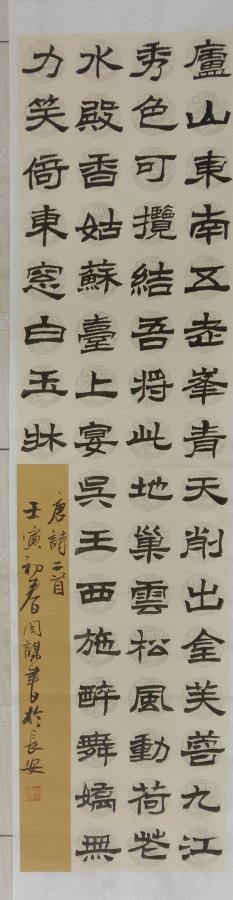 廬山東南五老峯青天削出金芙蓉九江
秀色可攬結吾將此地巢雲松風動荷花
水殿香姑蘇臺上宴吳王西施醉舞嬌無
力笑倚東窓白玉牀
唐詩二首
壬寅初春謀書於長安